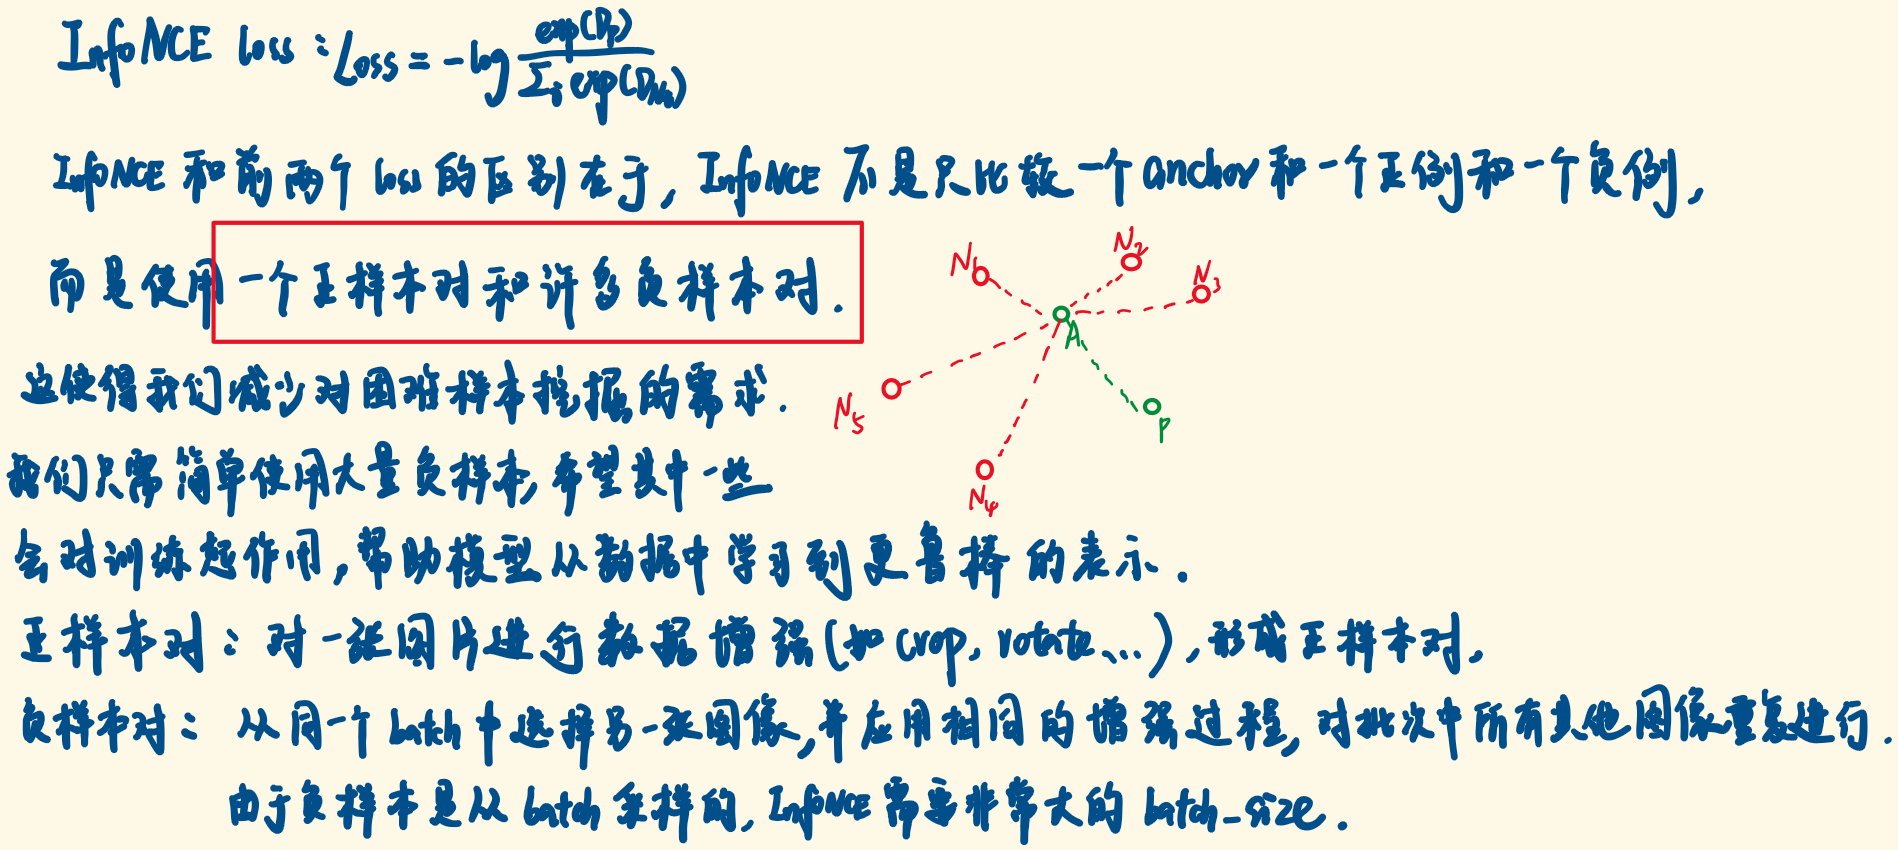 InfoNCE loss : Loss = -log exp(Dp) / Σi exp(DNi)
InfoNCE 和前两个 loss 的区别在于, InfoNCE 不是只比较一个 anchor 和一个正例和一个负例,
而是使用一个正样本对和许多负样本对.
N1
N2
N3
A
P
N5
N4
这使得我们减少对困难样本挖掘的需求.
我们只需简单使用大量负样本, 希望其中一些
会对训练起作用, 帮助模型从数据中学习到更鲁棒的表示.
正样本对: 对一张图片进行数据增强(如 crop, rotate...), 形成正样本对.
负样本对: 从同一个 batch 中选择另一张图像, 并应用相同的增强过程, 对批次中所有其他图像重复进行.
由于负样本是从 batch 采样的, InfoNCE 需要非常大的 batch_size.